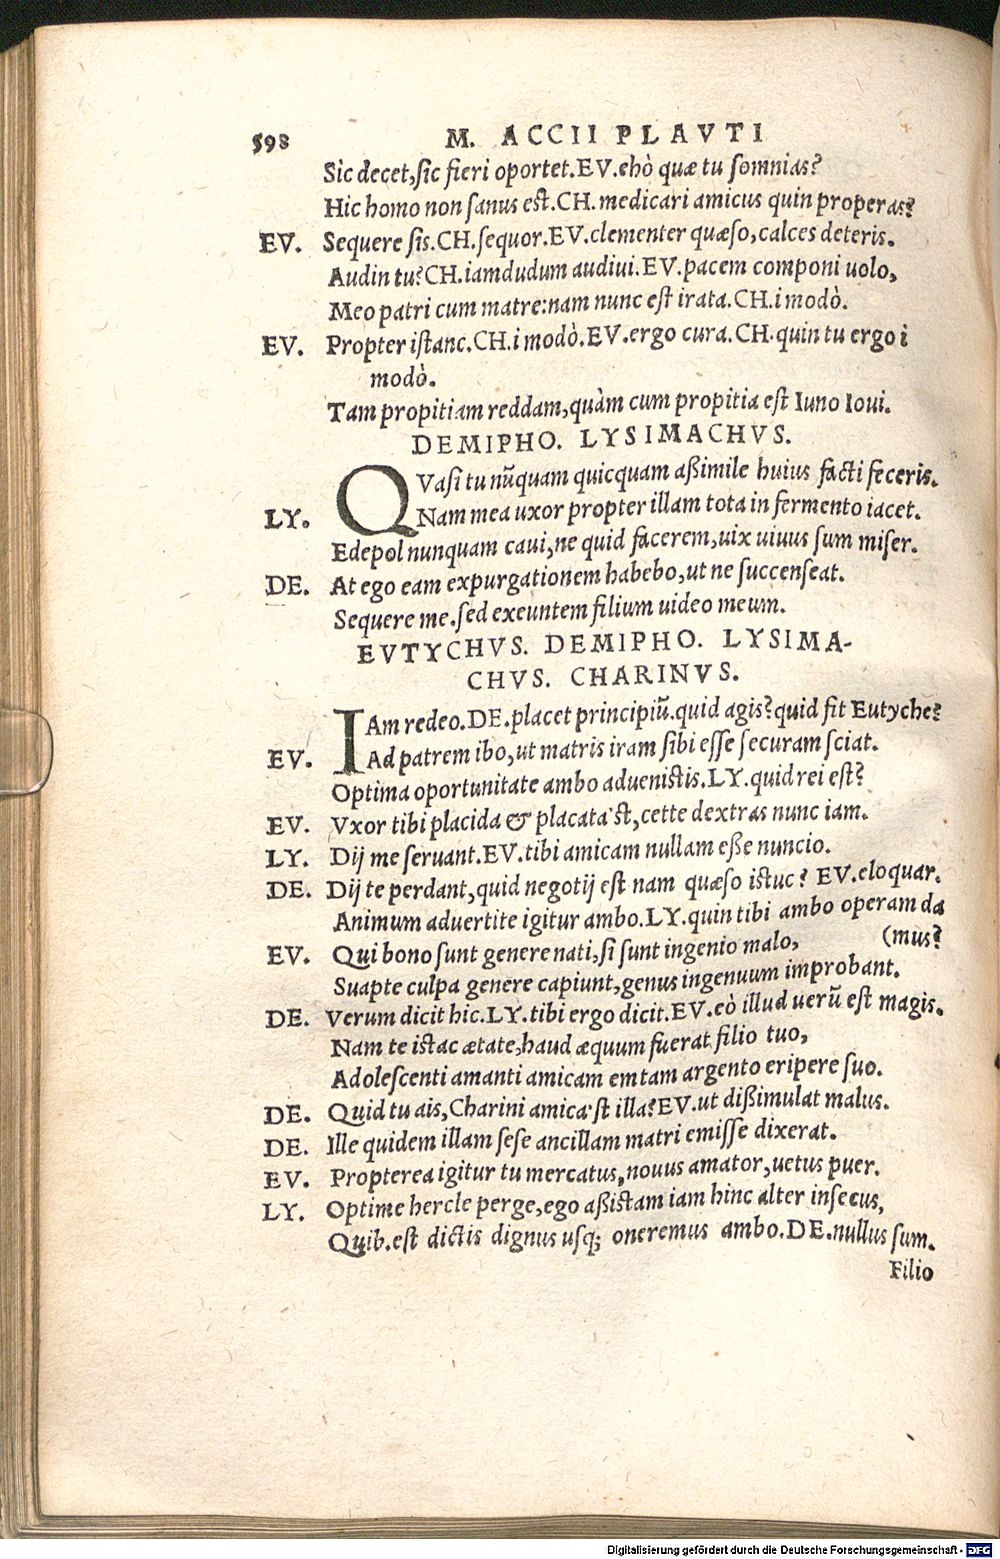 598 M. ACCII PLAVTI
Sic decet, sic fieri oportet. EV. ehò quæ tu somnias?
Hic homo non sanus est. CH. medicari amicus quin properas?
EV. Sequere sis. CH. sequor. EV. clementer quæso, calces deteris.
Audin tu? CH. iamdudum audiui. EV. pacem componi uolo,
Meo patri cum matre: nam nunc est irata. CH. i modò.
EV. Propter istanc. CH. i modò. EV. ergo cura. CH. quin tu ergo i
modò.
Tam propitiam reddam, quàm cum propitia est Iuno Ioui.
DEMIPHO. LYSIMACHVS.
QVasi tu nũquam quicquam aßimile huius facti feceris.
LY. Nam mea uxor propter illam tota in fermento iacet.
Edepol nunquam caui, ne quid facerem, uix uiuus sum miser.
DE. At ego eam expurgationem habebo, ut ne succenseat.
Sequere me. sed exeuntem filium uideo meum.
EVTYCHVS. DEMIPHO. LYSIMA-
CHVS. CHARINVS.
IAm redeo. DE. placet principiũ. quid agis? quid fit Eutyche?
EV. Ad patrem ibo, ut matris iram sibi esse securam sciat.
Optima oportunitate ambo aduenistis. LY. quid rei est?
EV. Vxor tibi placida & placata'st, cette dextras nunc iam.
LY. Dij me seruant. EV. tibi amicam nullam eße nuncio.
DE. Dij te perdant, quid negotij est nam quæso istuc? EV. eloquar.
Animum aduertite igitur ambo. LY. quin tibi ambo operam da
(mus?
EV. Qui bono sunt genere nati, si sunt ingenio malo,
Suapte culpa genere capiunt, genus ingenuum improbant.
DE. Verum dicit hic. LY. tibi ergo dicit. EV. eò illud uerũ est magis.
Nam te istac ætate, haud æquum fuerat filio tuo,
Adolescenti amanti amicam emtam argento eripere suo.
DE. Quid tu ais, Charini amica'st illa? EV. ut dißimulat malus.
DE. Ille quidem illam sese ancillam matri emisse dixerat.
EV. Propterea igitur tu mercatus, nouus amator, uetus puer.
LY. Optime hercle perge, ego aßistam iam hinc alter insecus,
Quib. est dictis dignus usq; oneremus ambo. DE. nullus sum.
Filio
Digitalisierung gefördert durch die Deutsche Forschungsgemeinschaft - DFG